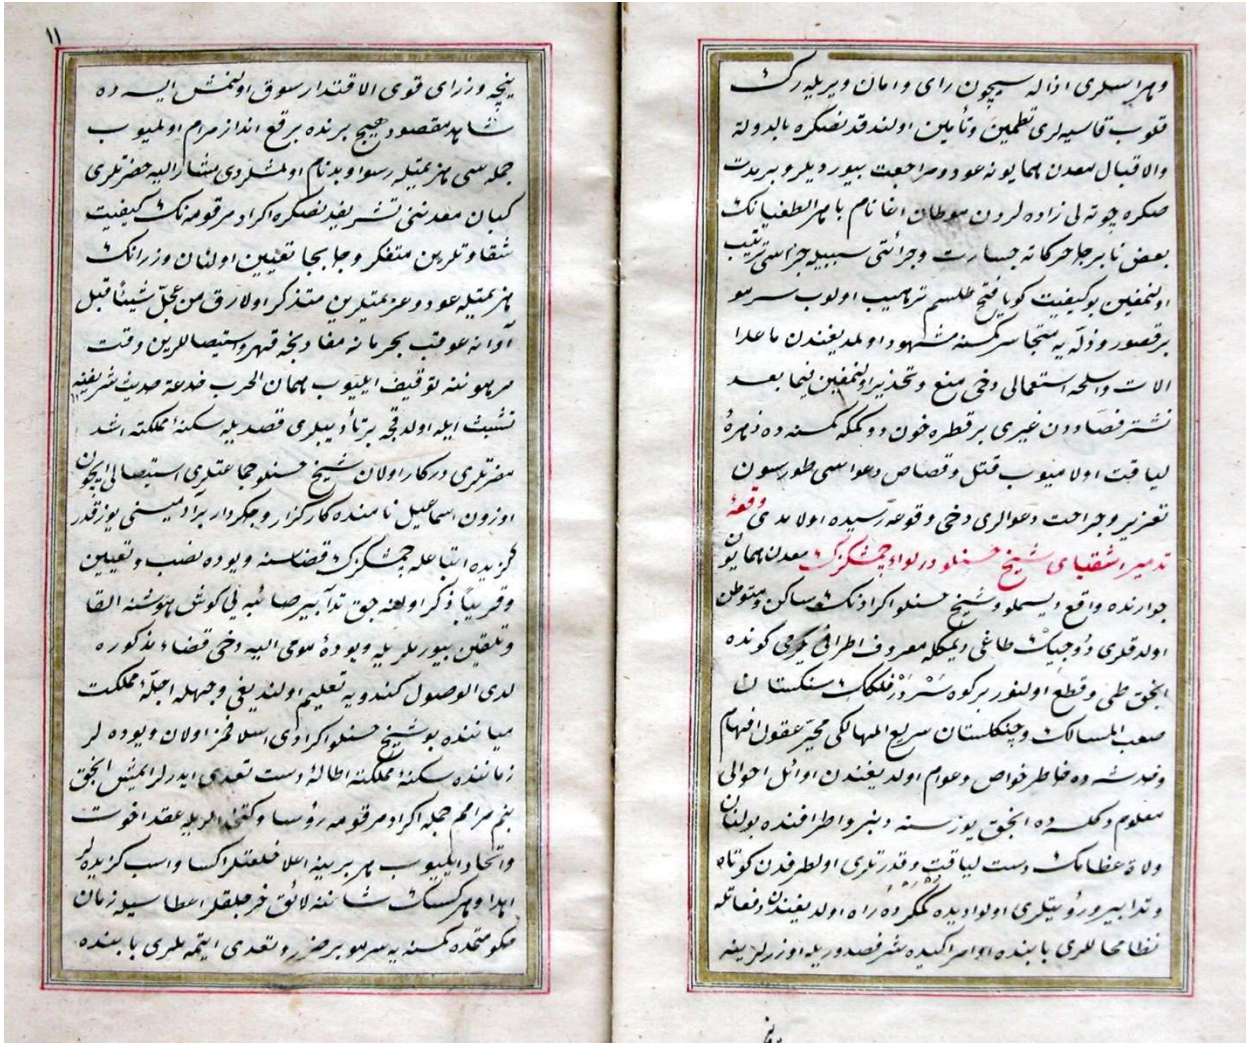 و هراسلری اذاله سیچون رای و امان ویریله رك
قلوب قاسیه لری تطمین و تأمین اولندقدنصکره بالدولة
والاقبال معدن همایونه عود و مراجعت بیوردیلر و بر مدت
صکره چوته لی زاده لردن سوطان اغا نام باهر الطغیانك
بعض نابرجا حرکاته جسارت و جرأتی سببیله جزاسی ترتیب
اولنمغین بو کیفیت کویا فتح طلسم ترهیب اولوب سرمو
بر قصور و ذلّه یه متجاسر کمسنه مشهود اولمدیغندن ماعدا
الات و اسلحه استعمالی دخی منع و تحذیر اولنمغین فیما بعد
نشتر فصاددن غیری بر قطره خون دوکمکه کمسنه ده زهرۀ
لیاقت اولامیوب قتل و قصاص دعواسی طورسون
تعزیر و جراحت دعوالری دخی وقوعه رسیده اولامدی وقعۀ
تدمیر اشقیای شیخ حسنلو در لواء چمشکزك معدن همایون
جوارنده واقع دیسملو و شیخ حسنلو اکرادنك ساکن و متوطن
اولدقلری دوجیك طاغی دیمکله معروف اطرافی یکرمی کونده
انجق طی و قطع اولنور بر کوه سر در فلكك سنکستان
صعب المسالك و چنکلستان سریع المهالکی محیّر عقول افهام
و خدشه ده خاطر خواص و عوام اولدیغندن اوائل احوالی
معلوم دکلسه ده انجق یوز سنه دنبرو اطرافنده بولنان
ولاة عظامك دست لیاقت و قدرتلری اولطرفدن کوتاه
و تدابیر و رؤیتلری اولوادیده کمکردۀ راه اولدیغندن دفعاتله
نظام حاللری بابنده اوامر اکیده شرفصدوریله اوزرلرینه
۱۱
نیچه وزرای قوی الاقتدار سوق اولنمش ایسه ده
شاهد مقصود هیچ برنده برقع انداز مرام اولمیوب
جمله سی هزیمتیله رسوا و بدنام اولمشلردی مشار الیه حضرتلری
کبان معدننی تشریفدنصکره اکراد مرقومه نك کیفیت
شقاوتلرین متفکر و جابجا تعیین اولنان وزرانك
هزیمتیله عود و عزیمتلرین متذکر اولارق من عجّل شیئا قبل
آوانه عوقب بحرمانه مفادنجه قهر و استیصاللرین وقت
مرهوننه توقیف ایلیوب همان الحرب خدعة حدیث شریفنه
تشبث ایله اولدقجه بر تأدیبلری قصدیله سکنۀ مملکته اشد
مضرتلری درکار اولان شیخ حسنلو جماعتلری استیصالی ایچون
اوزون اسماعیل نامنده کارکزار و جکردار بر آدمیسنی یوز قدر
کزیده اتباعله چمشکزك قضاسنه ویوده نصب و تعیین
و قریباً ذکر اولنه جق تدابیر صائبه یی کوش هوشنه القا
و تلقین بیوردیلر ویوده مومی الیه دخی قضاء مذکوره
لدی الوصول کندویه تعلیم اولندیغی وجهله اجلّۀ مملکت
میاننده بو شیخ حسنلو اکرادی اسلافمز اولان ویوده لر
زماننده سکنۀ مملکته اطالۀ دست تعدی ایدرلر ایمش انجق
بنم مرامم جمله اکراد مرقومه رؤسا و کتخدالریله عقد اخوت
و اتحاد ایلیوب هر برینه اعلا خلعتلر اکسا و اسب کزیده لر
اهدا و هر کسك شاننه لائق خرجلقلر اعطاسیله زمان
حکومتمده کمسنه یه سرمو بر ضرر و تعدی ایتمه ملری بابنده